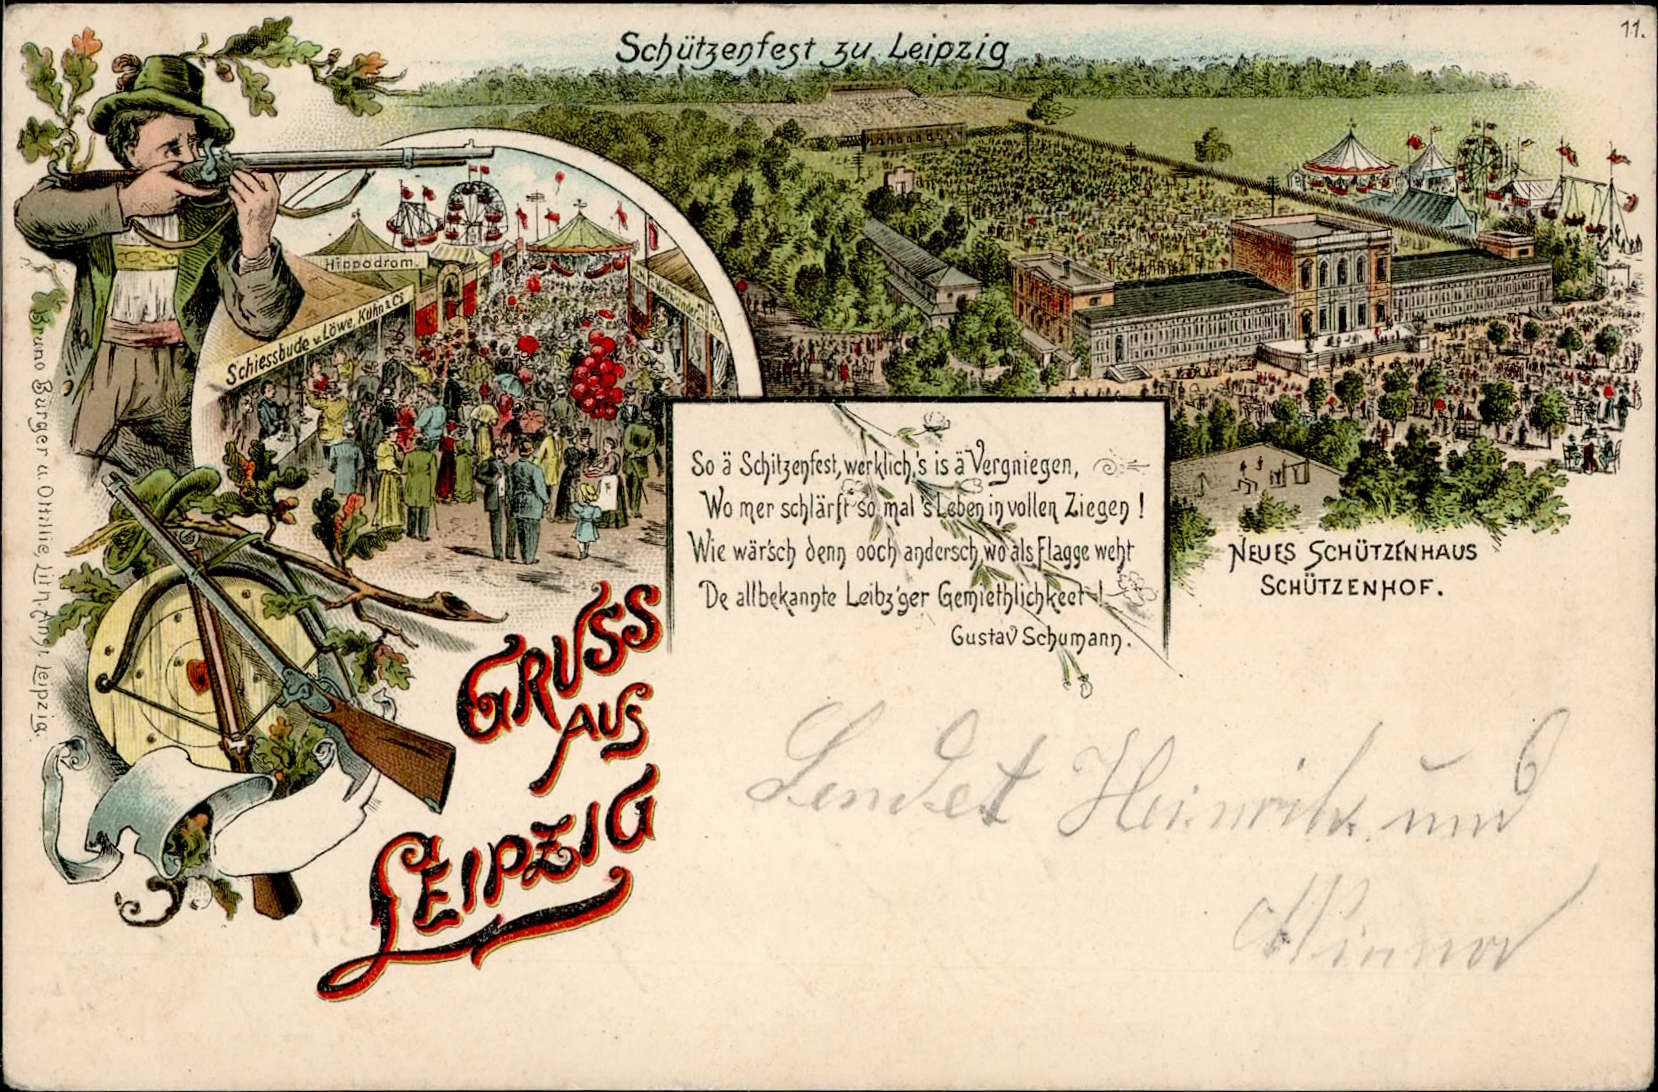 11.
Schützenfest zu Leipzig
Hippodrom.
Schiessbude v. Löwe, Kuhn & Co
So ä Schitzenfest, werklich,'s is ä Vergniegen,
Wo mer schlärft so mal 's Leben in vollen Ziegen !
Wie wär'sch denn ooch andersch, wo als Flagge weht
De allbekannte Leibz'ger Gemiethlichkeet !
Gustav Schumann.
NEUES SCHÜTZENHAUS
SCHÜTZENHOF.
GRUSS
AUS
LEIPZIG
Bruno Bürger u. Ottilie, Lith. Anst. Leipzig.
Sendet Heinrich und
Minna